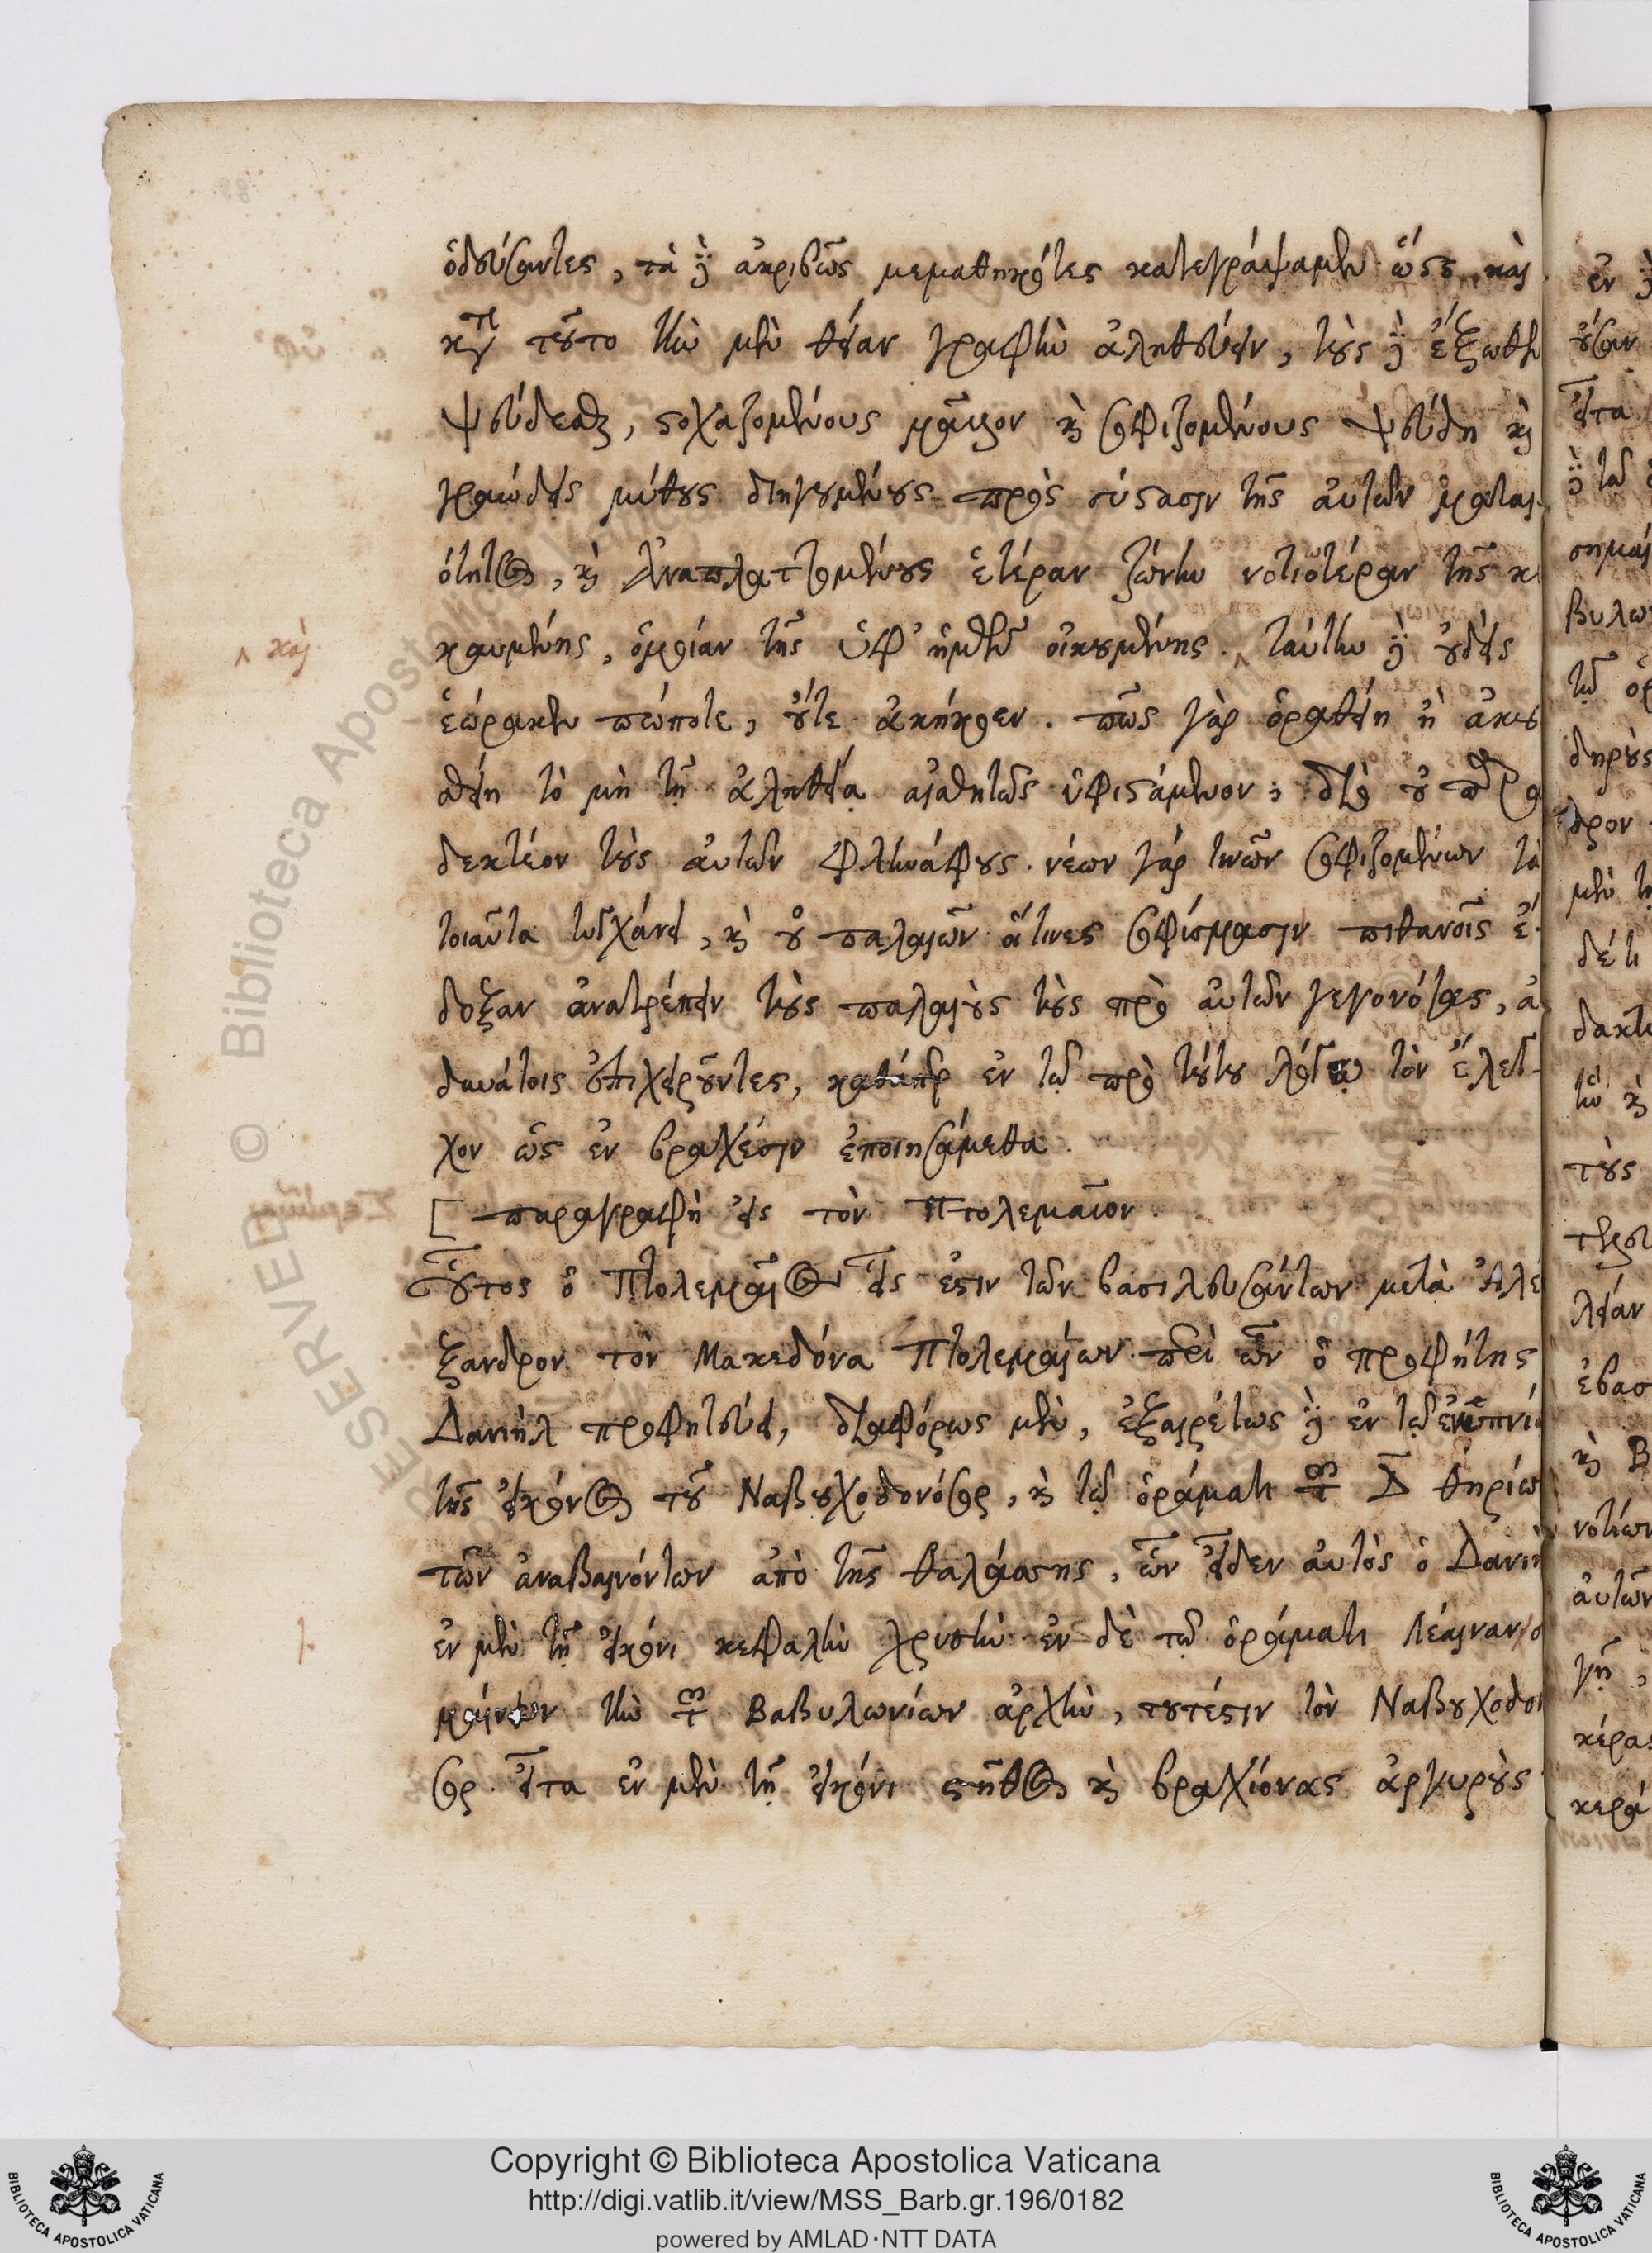 ὁδεύσαντες, τὰ δὲ ἀκριβῶς μεμαθηκότες κατεγράψαμεν. ὥστε καὶ
κατὰ τοῦτο τὴν μὲν θείαν γραφὴν ἀληθεύειν, τοὺς δὲ ἔξωθεν
ψεύδεσθαι, στοχαζομένους μᾶλλον καὶ σοφιζομένους ψεύδη καὶ
γραώδεις μύθους διηγουμένους πρὸς σύστασιν τῆς αὐτῶν μαται-
ότητος, καὶ ἀναπλαττομένους ἑτέραν ζώνην νοτιοτέραν τῆς κε
καυμένης, ὁμοίαν τῆς ὑφ' ἡμῶν οἰκουμένης. ταύτην δὲ οὐδεὶς
^ καὶ
ἑώρακεν πώποτε, οὔτε ἀκήκοεν. πῶς γὰρ ὁραθείη ἢ ἀκους
θείη τὸ μὴ τῇ ἀληθείᾳ αἰσθητῶς ὑφιστάμενον; διὸ οὐ παρα
δεκτέον τοὺς αὐτῶν φληνάφους. νέων γάρ τινων σοφιζομένων τὰ
τοιαῦτα τυγχάνει, καὶ οὐ παλαιῶν. οἵτινες σοφίσμασιν πιθανοῖς ἔ-
δοξαν ἀνατρέπειν τοὺς παλαιοὺς τοὺς πρὸ αὐτῶν γεγονότας, ἀ
δυνάτοις ἐπιχειροῦντες, καθάπερ ἐν τῷ πρὸ τούτου λόγῳ τὸν ἔλεγ-
χον ὡς ἐν βραχέσιν ἐποιησάμεθα.
[ παραγραφὴ εἰς τὸν Πτολεμαῖον.
Οὗτος ὁ Πτολεμαῖος εἷς ἐστιν τῶν βασιλευσάντων μετὰ Ἀλέ
ξανδρον τὸν Μακεδόνα Πτολεμαίων. περὶ ὧν ὁ προφήτης
Δανιὴλ προφητεύει, διαφόρως μὲν, ἐξαιρέτως δὲ ἐν τῷ ἐνυπνίῳ
τῆς εἰκόνος τοῦ Ναβουχοδονόσορ, καὶ τῷ ὁράματι τῶν Δ θηρίων
τῶν ἀναβαινόντων ἀπὸ τῆς θαλάσσης, ὧν εἶδεν αὐτὸς ὁ Δανιὴλ
ἐν μὲν τῇ εἰκόνι κεφαλὴν χρυσῆν. ἐν δὲ τῷ ὁράματι λέαιναν, ση
μαίνων τὴν τῶν Βαβυλωνίων ἀρχὴν, τουτέστιν τὸν Ναβουχοδονό
σορ. εἶτα ἐν μὲν τῇ εἰκόνι στῆθος καὶ βραχίονας ἀργυροῦς
Copyright © Biblioteca Apostolica Vaticana
http://digi.vatlib.it/view/MSS_Barb.gr.196/0182
powered by AMLAD·NTT DATA
BIBLIOTECA APOSTOLICA VATICANA
BIBLIOTECA APOSTOLICA VATICANA